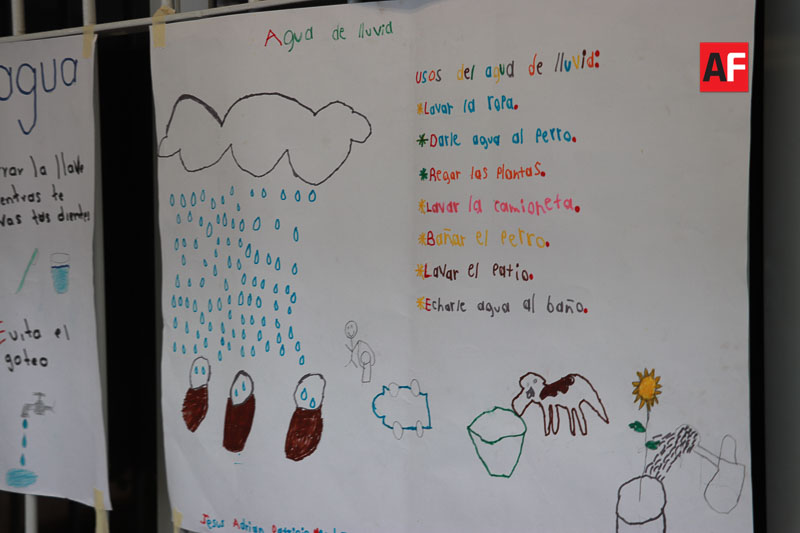 agua
la llave
te
dientes
Evita el
goteo
Agua de lluvia
usos del agua de lluvia:
*Lavar la ropa.
*Darle agua al perro.
*Regar las plantas.
*Lavar la camioneta.
*Bañar el perro.
*Lavar el patio.
*Echarle agua al baño.
Jesus Adrian
AF